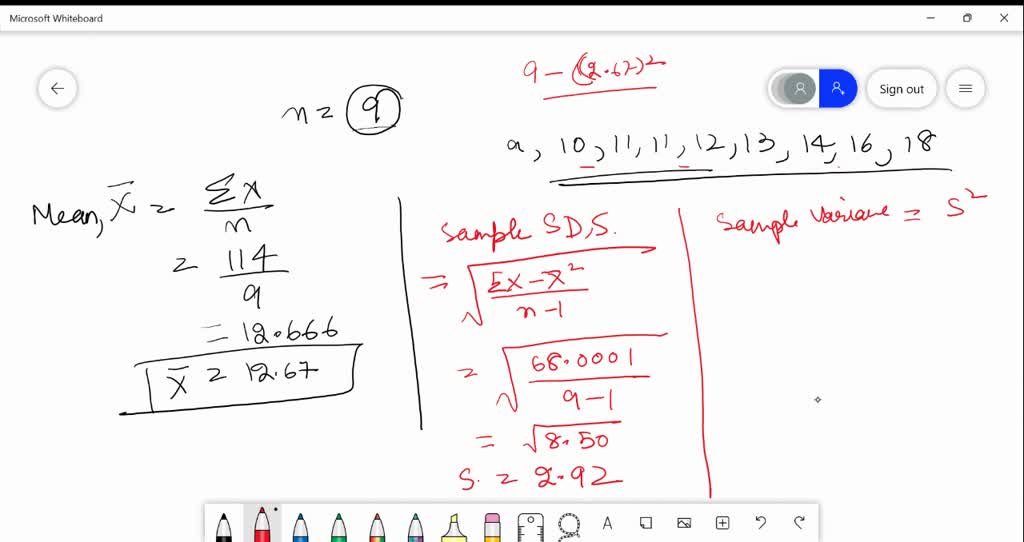 Microsoft Whiteboard
Sign out
9 - ((2.67)²
n = 9
9, 10, 11, 11, 12, 13, 14, 16, 18
Mean, X̄ = ΣX/n
= 114/9
= 12.666
X̄ = 12.67
Sample SD, S.
= √(ΣX - X̄²/n-1)
= √(68.0001/9-1)
= √8.50
S. = 2.92
Sample Variance = S²
A